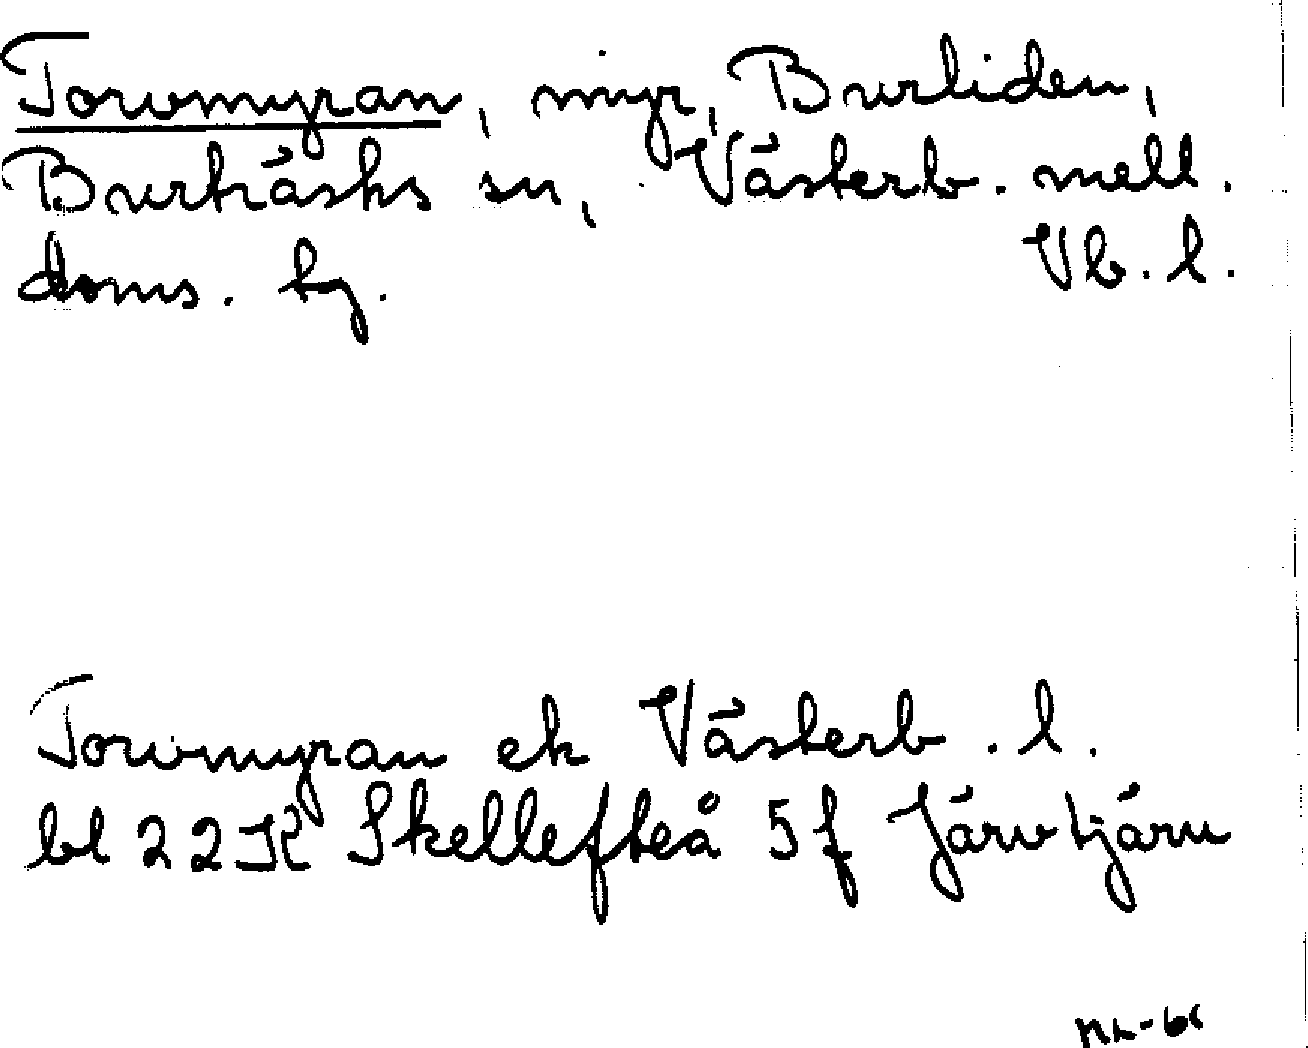 Torvmyran, myr, Burliden,
Burträsks sn, Västerb. mell.
doms. bg. Vb. l.
Torvmyran ek Västerb. l.
bl 22K Skellefteå 5f Järvtjärn